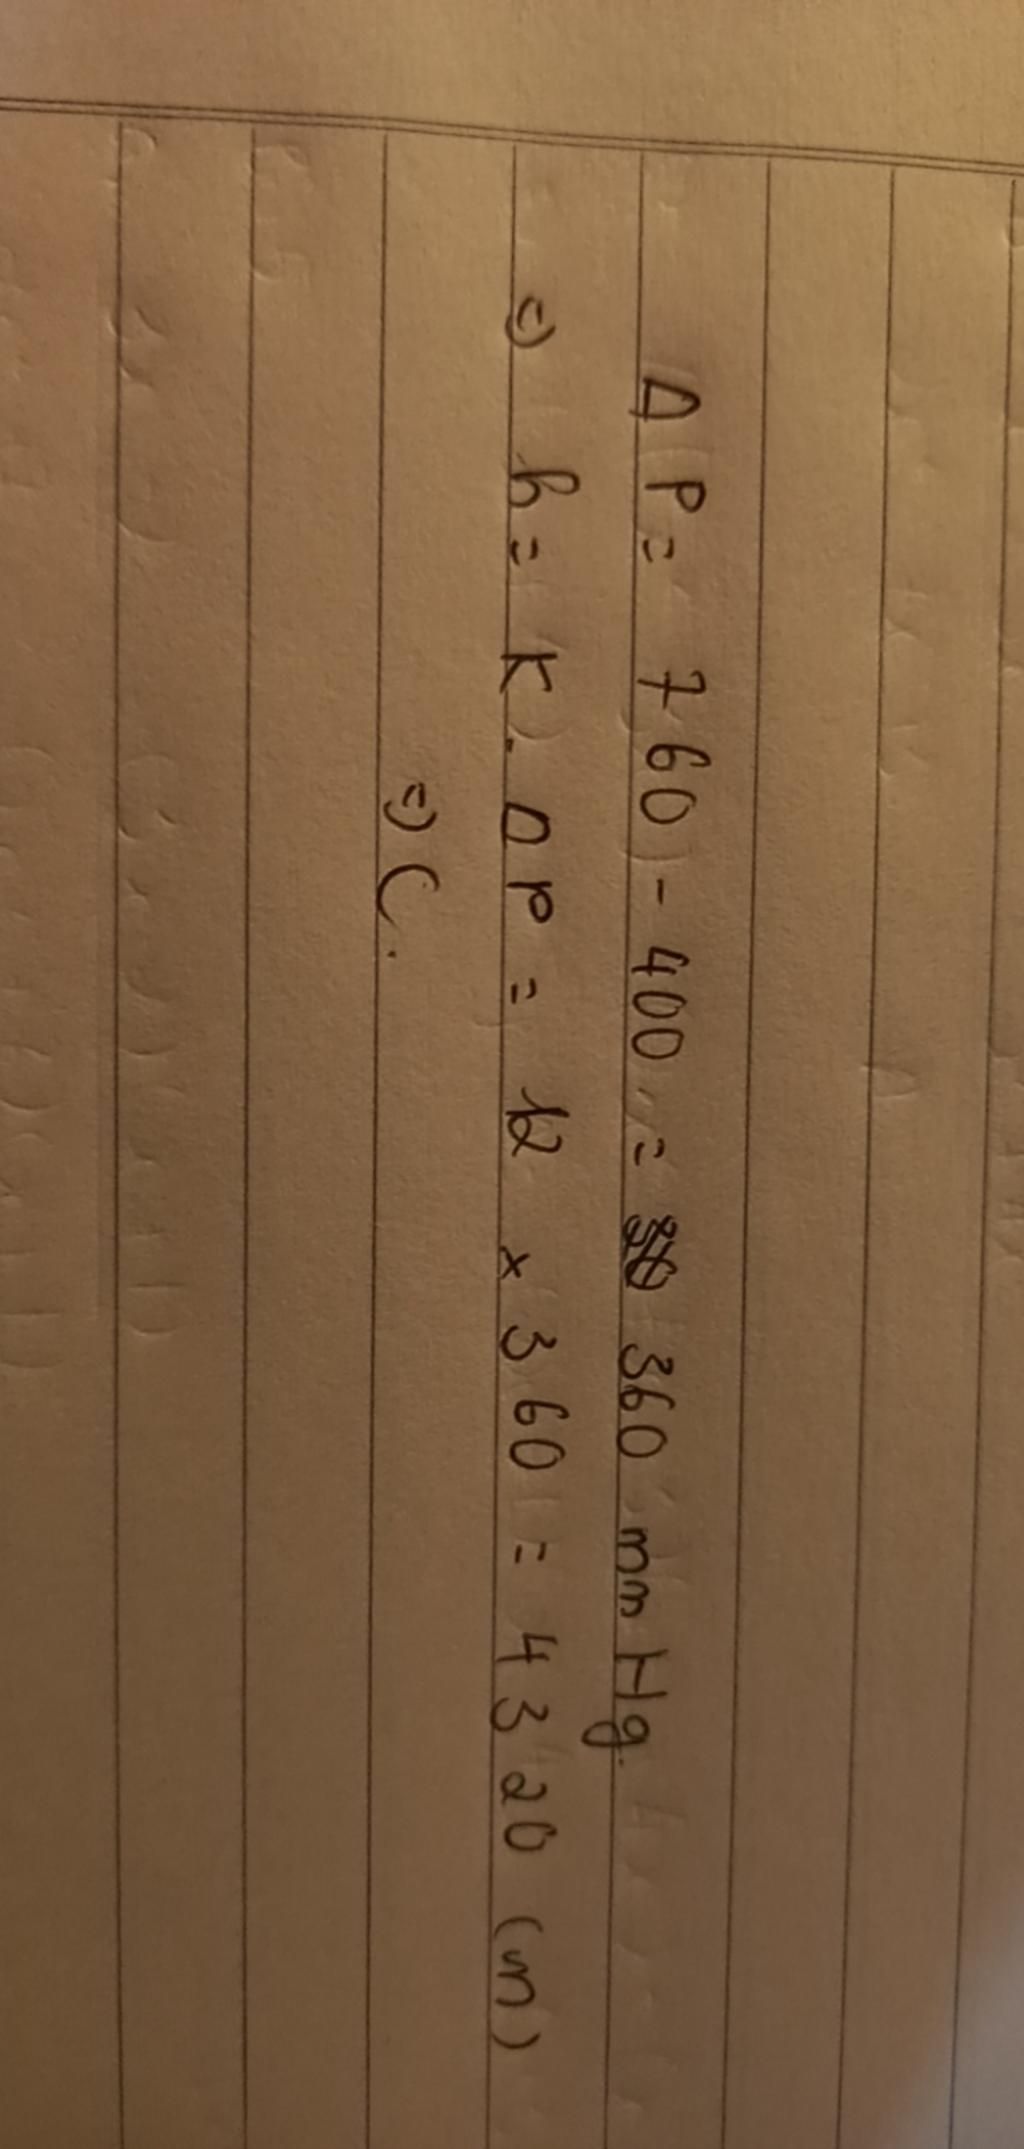 ΔP = 760 - 400 = 360 mmHg.
=) h = K. ΔP = 12 x 360 = 4320 (m)
=) C.